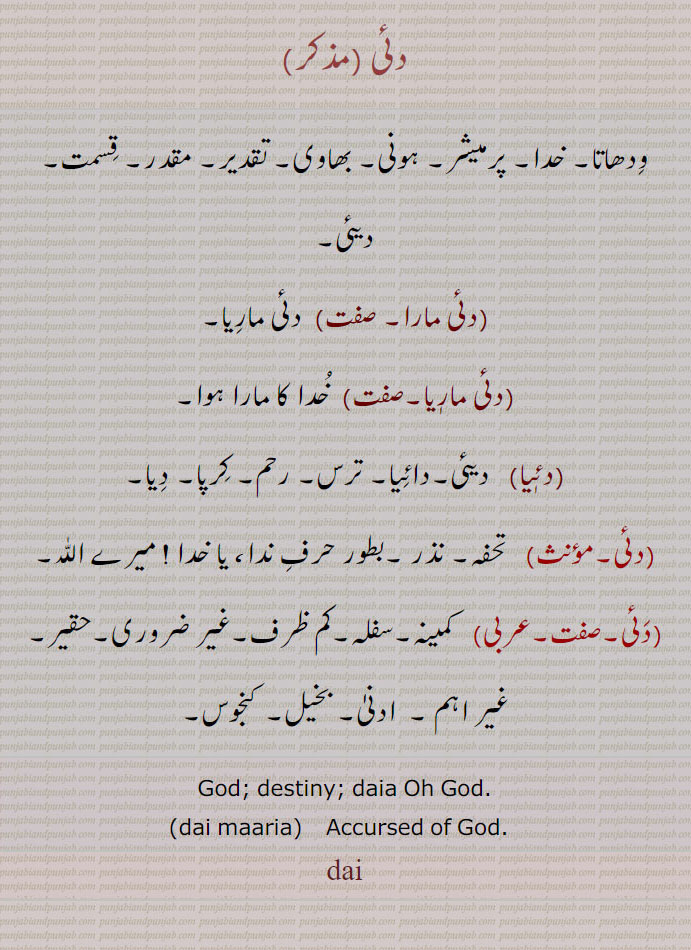 دئی (مذکر)
وِدھاتا۔ خدا۔ پرمیشر۔ ہونی۔ بھاوی۔ تقدیر۔ مقدر۔ قِسمت۔
دیئی۔
(دئی مارا۔ صفت) دئی مارِیا۔
(دئی مارِیا۔صفت) خُدا کا مارا ہوا۔
(دئِیا) دیئی۔دائِیا۔ ترس۔ رحم۔ کِرپا۔ دِیا۔
(دئی۔مؤنث) تحفہ۔ نذر ۔بطور حرفِ ندا، یا خدا ! میرے اللہ۔
(دَئی۔صفت۔عربی) کمینہ۔سفلہ۔کم ظرف۔غیر ضروری۔حقیر۔
غیر اہم ۔ ادنیٰ۔ بخیل۔ کنجوس۔
God; destiny; daia Oh God.
(dai maaria) Accursed of God.
dai